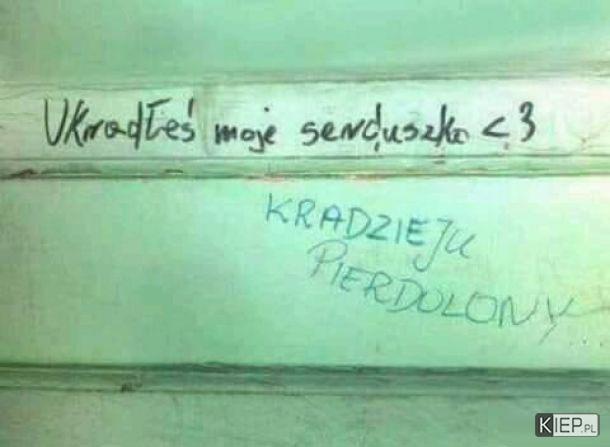 Ukradłeś moje serduszko <3
KRADZIEJU
PIERDOLONY
KIEP.PL